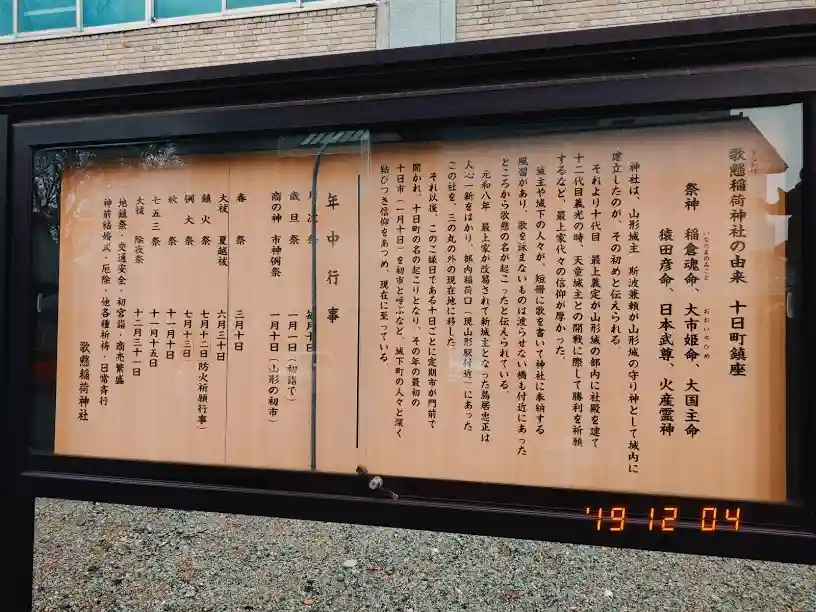 歌懸稲荷神社の由来　十日町鎮座
うたかけ
祭神　稲倉魂命、大市姫命、大国主命
いなだまのみこと　おおいちひめ
猿田彦命、日本武尊、火産霊神
神社は、山形城主　斯波兼頼が山形城の守り神として城内に
建立したのが、その初めと伝えられる。
それより十代目　最上義定が山形城の郭内に社殿を建て
十二代目義光の時、天童城主との開戦に際して勝利を祈願
するなど、最上家代々の信仰が厚かった。
城主や城下の人々が、短冊に歌を書いて神社に奉納する
風習があり、歌を詠まないものは渡らせない橋も付近にあった
ところから歌懸の名が起こったと伝えられている。
元和八年　最上家が改易されて新城主となった鳥居忠正は
人心一新をはかり、郭内稲荷口（現山形駅付近）にあった
この社を、三の丸の外の現在地に移した。
それ以後、このご縁日である十日ごとに定期市が門前で
開かれ、十日町の名の起こりとなり、その年の最初の
十日市（一月十日）を初市と呼ぶなど、城下町の人々と深く
結びつき信仰をあつめ、現在に至っている。
年中行事
月次祭　毎月十日
歳旦祭　一月一日（初詣で）
商の神　市神例祭　一月十日（山形の初市）
春祭　三月十日
大祓　夏越祓　六月三十日
鎮火祭　七月十二日（防火祈願行事）
例大祭　七月十三日
秋祭　十一月十日
七五三祭　十一月十五日
大祓　除夜祭　十二月三十一日
地鎮祭・交通安全・初宮詣・商売繁盛
神前結婚式・厄除・他各種祈祷・日常斉行
歌懸稲荷神社
'19 12 04